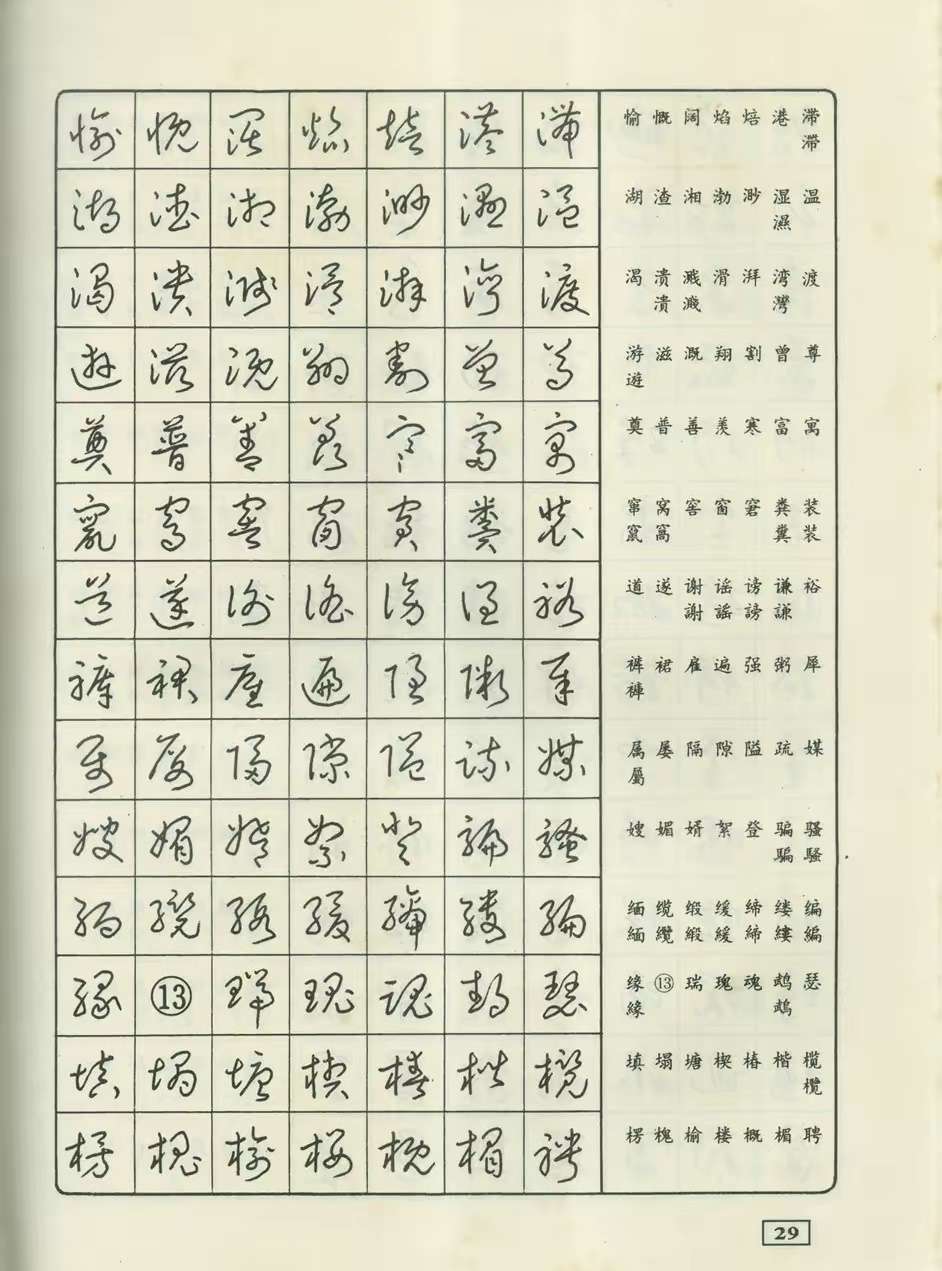 愉 慨 阔 焰 焙 港 滞
滞
湖 渣 湘 渤 渺 湿 温
濕
渴 溃 溅 滑 湃 湾 渡
潰 濺 灣
游 滋 溉 翔 割 曾 尊
遊
奠 普 善 羡 寒 富 寓
窜 窝 窖 窗 窘 粪 装
竄 窩 糞 裝
道 遂 谢 谣 谤 谦 裕
謝 謠 謗 謙
裤 裙 雇 遍 强 粥 犀
褲
属 屡 隔 隙 隘 疏 媒
屬
嫂 媚 婿 絮 登 骗 骚
騙 騷
缅 缆 缎 缓 缔 缕 编
緬 纜 緞 緩 締 縷 編
缘 ⑬ 瑞 瑰 魂 鹉 瑟
緣 鵡
填 塌 塘 楔 椿 楷 榄
欖
楞 槐 榆 楼 概 楣 聘
29